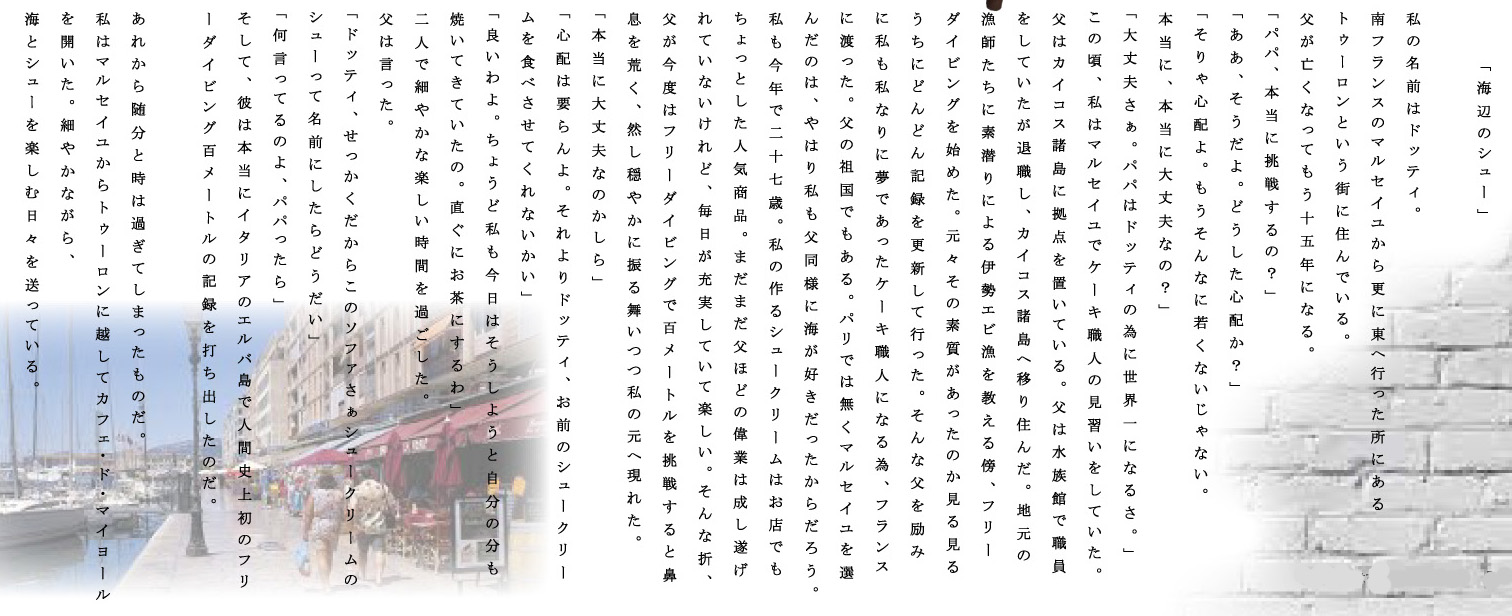 「海辺のシュー」
私の名前はドッティ。
南フランスのマルセイユから更に東へ行った所にある
トゥーロンという街に住んでいる。
父が亡くなってもう十五年になる。
「パパ、本当に挑戦するの？」
「ああ、そうだよ。どうした心配か？」
「そりゃ心配よ。もうそんなに若くないじゃない。
本当に、本当に大丈夫なの？」
「大丈夫さぁ。パパはドッティの為に世界一になるさ。」
この頃、私はマルセイユでケーキ職人の見習いをしていた。
父はカイコス諸島に拠点を置いている。父は水族館で職員
をしていたが退職し、カイコス諸島へ移り住んだ。地元の
漁師たちに素潜りによる伊勢エビ漁を教える傍、フリー
ダイビングを始めた。元々その素質があったのか見る見る
うちにどんどん記録を更新して行った。そんな父を励み
に私も私なりに夢であったケーキ職人になる為、フランス
に渡った。父の祖国でもある。パリでは無くマルセイユを選
んだのは、やはり私も父同様に海が好きだったからだろう。
私も今年で二十七歳。私の作るシュークリームはお店でも
ちょっとした人気商品。まだまだ父ほどの偉業は成し遂げ
れていないけれど、毎日が充実していて楽しい。そんな折、
父が今度はフリーダイビングで百メートルを挑戦すると鼻
息を荒く、然し穏やかに振る舞いつつ私の元へ現れた。
「本当に大丈夫なのかしら」
「心配は要らんよ。それよりドッティ、お前のシュークリー
ムを食べさせてくれないかい」
「良いわよ。ちょうど私も今日はそうしようと自分の分も
焼いてきていたの。直ぐにお茶にするわ」
二人で細やかな楽しい時間を過ごした。
父は言った。
「ドッティ、せっかくだからこのソファさぁシュークリームの
シューって名前にしたらどうだい」
「何言ってるのよ、パパったら」
そして、彼は本当にイタリアのエルバ島で人間史上初のフリ
ーダイビング百メートルの記録を打ち出したのだ。
あれから随分と時は過ぎてしまったものだ。
私はマルセイユからトゥーロンに越してカフェ・ド・マイヨール
を開いた。細やかながら、
海とシューを楽しむ日々を送っている。